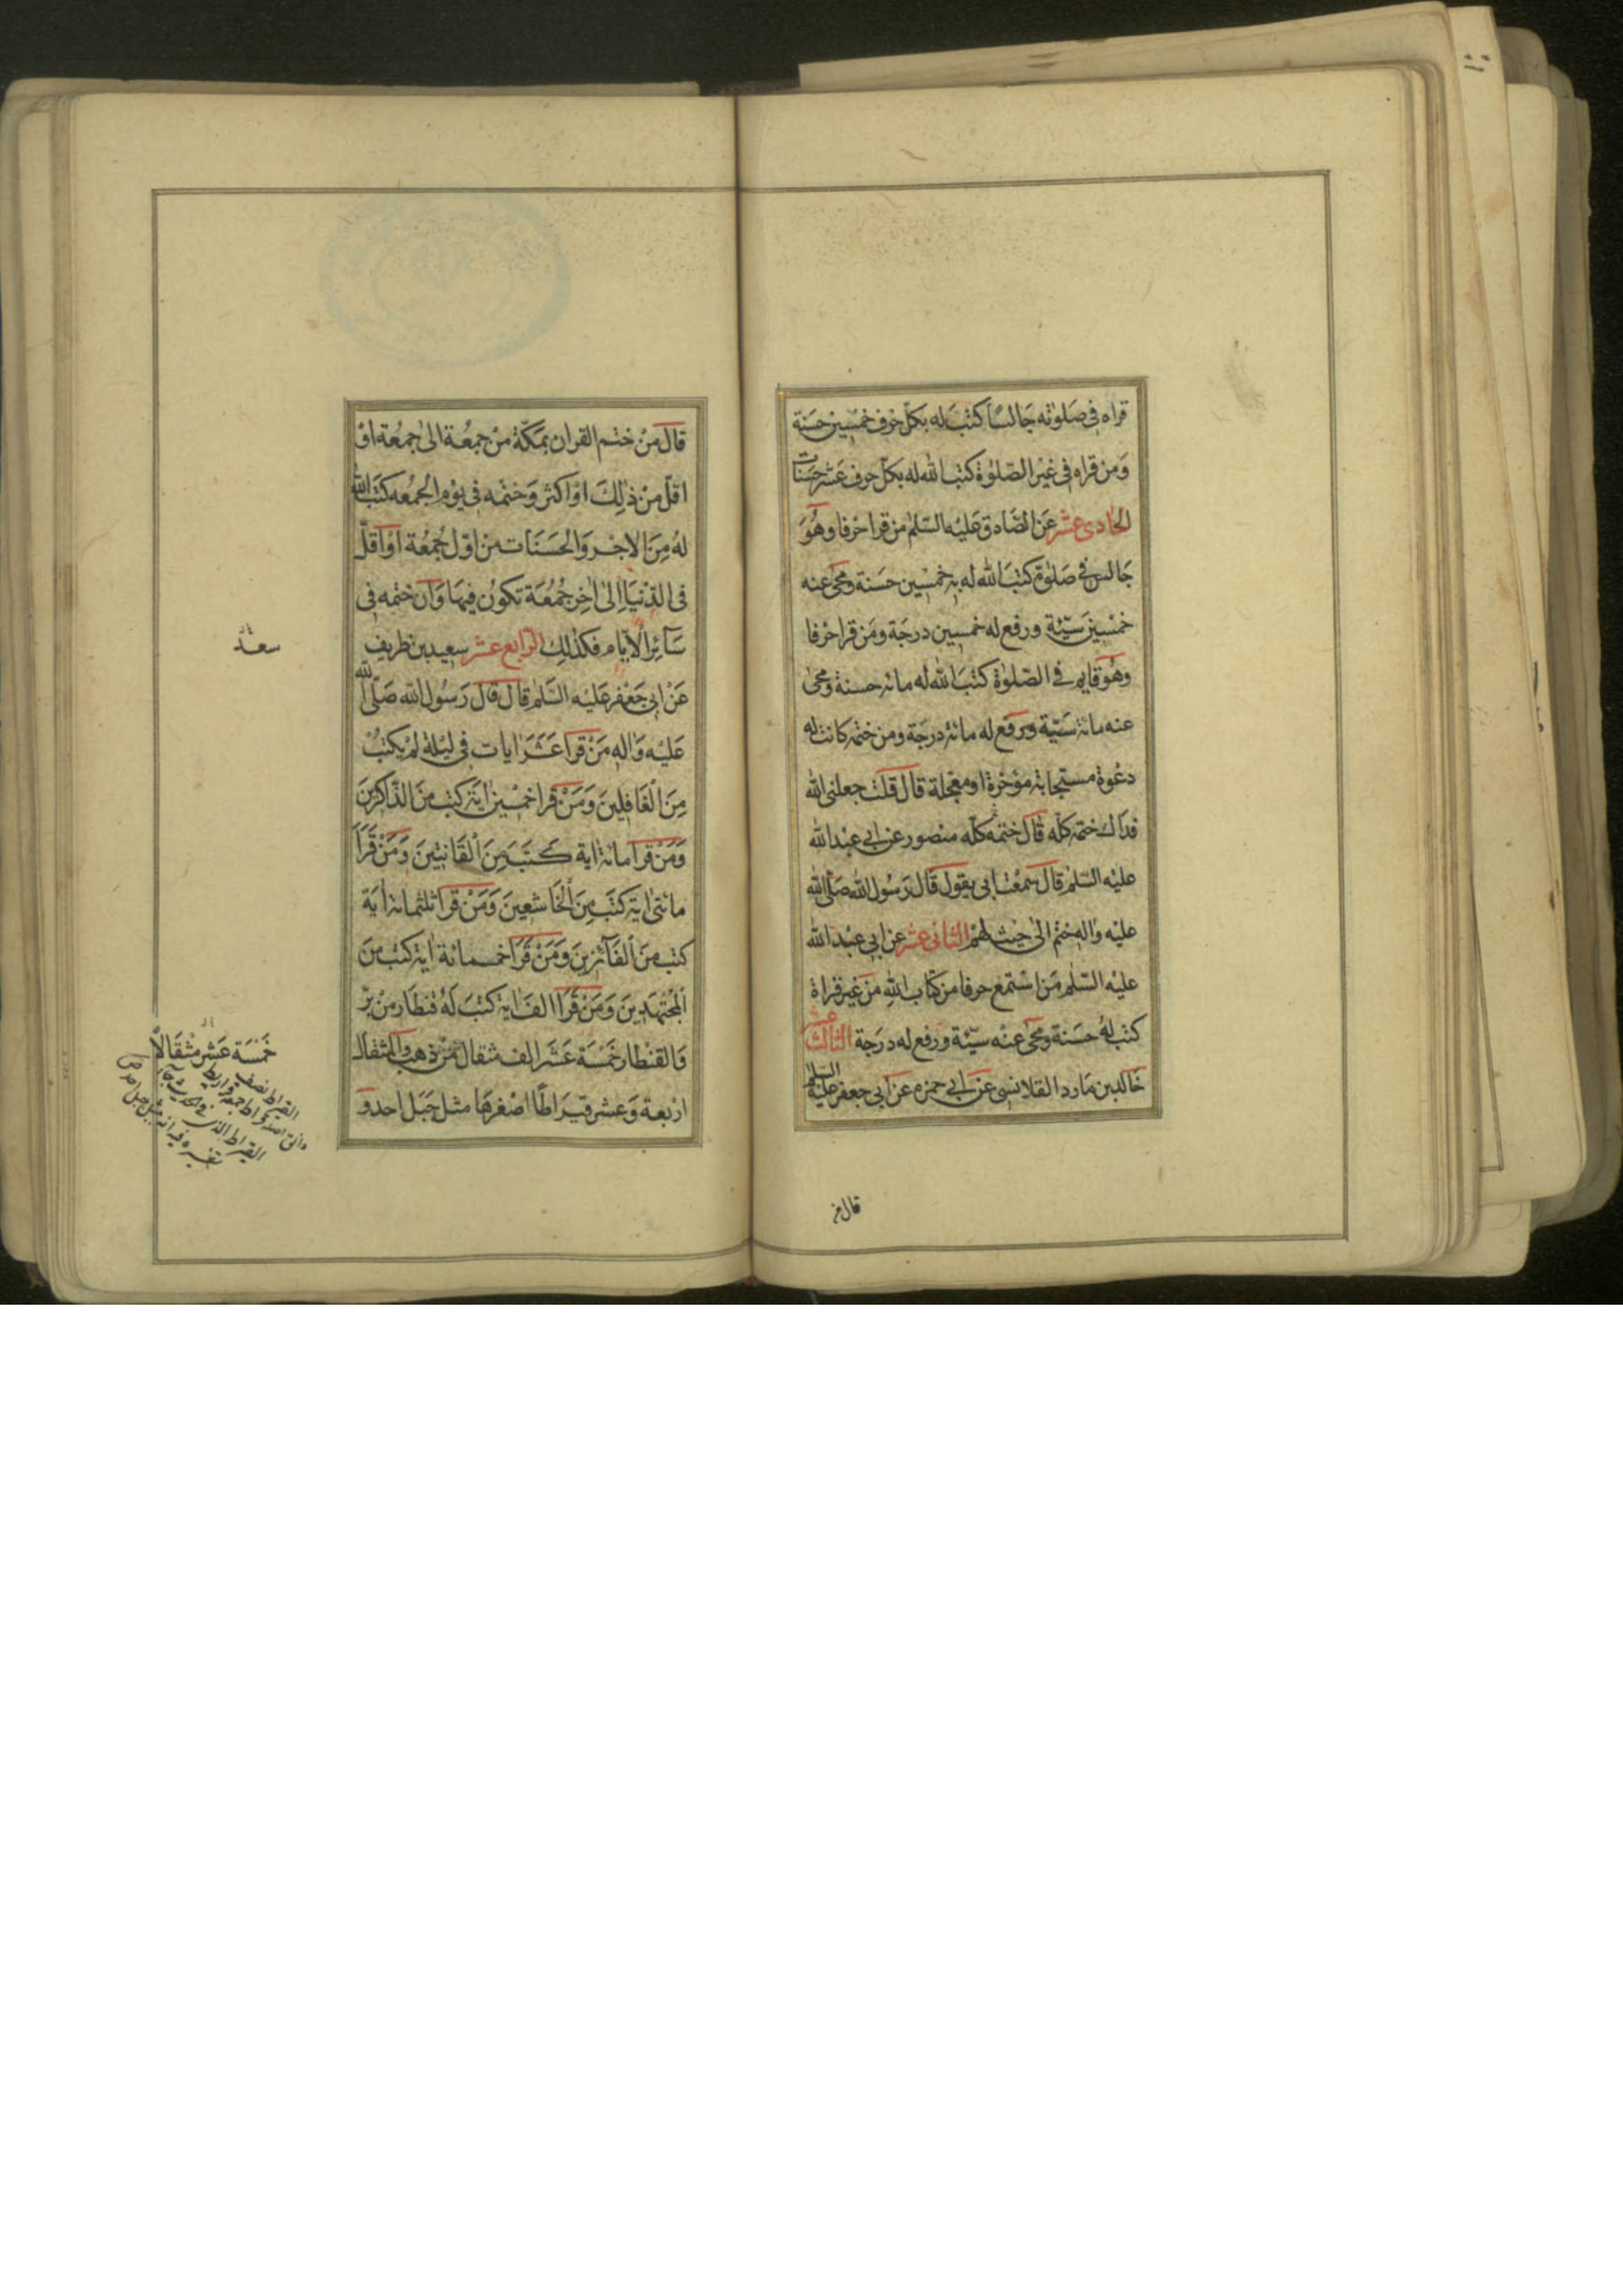 قراه فى صَلوٰته جَالسًا كتبَ له بكلّ حرف خمسين حسَنة
وَمن قراه فى غيْر الصّلوٰة كتب الله له بكلّ حرف عَشر حسَنات
الحادى عشر عَن الصّادق عَليْه السّلم من قرا حرفا وهُوَ
جَالس فى صَلوٰة كتبَ الله له به خمسْين حسَنة ومحى عنه
خمسْين سَيّئة ورفع له خمسين درجَة ومَن قرا حرفا
وهُو قايم فى الصّلوٰة كتبَ الله له مائة حسنة ومحى
عنه مائة سَيّئة ورفع له مائة درجَة ومن ختمه كانت له
دعْوة مستجابة مؤخرة او معجلة قال قلت جعلنى الله
فداك ختمه كلّه قال ختمه كلّه منصور عن ابى عبْد الله
عليْه السّلم قال سمعْت ابى يقول قال رَسُول الله صَلّى الله
عليْه واٰله ختم الىٰ حيث علم الثانى عشر عن ابى عبْد الله
عليْه السّلم مَن اسْتمَع حرفا من كتاب الله من غير قراة
كتب لهُ حسَنة ومحىٰ عنْه سيّئة ورفع له درَجة الثالث عشر
خالد بن مَارد القلانسى عن ابى حمزه عن ابى جعفر عليْه السلم
قال من
قالَ مَنْ ختم القران بمَكّة منْ جمعُة الىٰ جمعُة اوْ
اقلّ منْ ذٰلِكَ اوْ اكثر وَختمه فى يوْم الجمُعه كتبَ الله
لهُ مِنَ الاجْر وَالحسَنَات من اوّل جُمعُة اوْ اقلّ
فى الدّنيَا الىٰ اٰخِر جُمُعَة تكوُن فيهَا وَان ختمه فى
سَآئِر الايّام فكذٰلِك الرّابع عشر سعيد بن ظريف
عَنْ ابى جَعْفر عَليْه السَّلم قال قال رَسُول الله صَلّى الله
عَليْه وَاله مَنْ قرا عَشَر اٰيات فى ليْلة لمْ يكتبْ
مِنَ الْغَافِلينَ وَمَنْ قرا خمسْين اٰيَة كتب منَ الذّاكرينَ
وَمَنْ قرا مائة اية كتبَ مِنَ الْقَانِتينَ وَمَنْ قَرَأ
مائتى اٰية كتبَ مِنَ الْخَاشعينَ وَمَنْ قرا ثلثمائة اٰيَة
كتب منَ الْفَآئزينَ وَمَنْ قَرَا خمسمائة اٰية كتب منَ
الْمُجْتهدينَ وَمَنْ قَرَا الفَ اية كتبَ لهُ قنطار منْ برّ
وَالقنطار خمسَْة عَشَر الف مثقال منْ ذهب والمثقال
ارْبعة وَعشر قيرَاطًا اصْغرهَا مثل جَبَل احدو
سعد
خَمْسَة عَشر مثْقَالاً
القيراط نصف